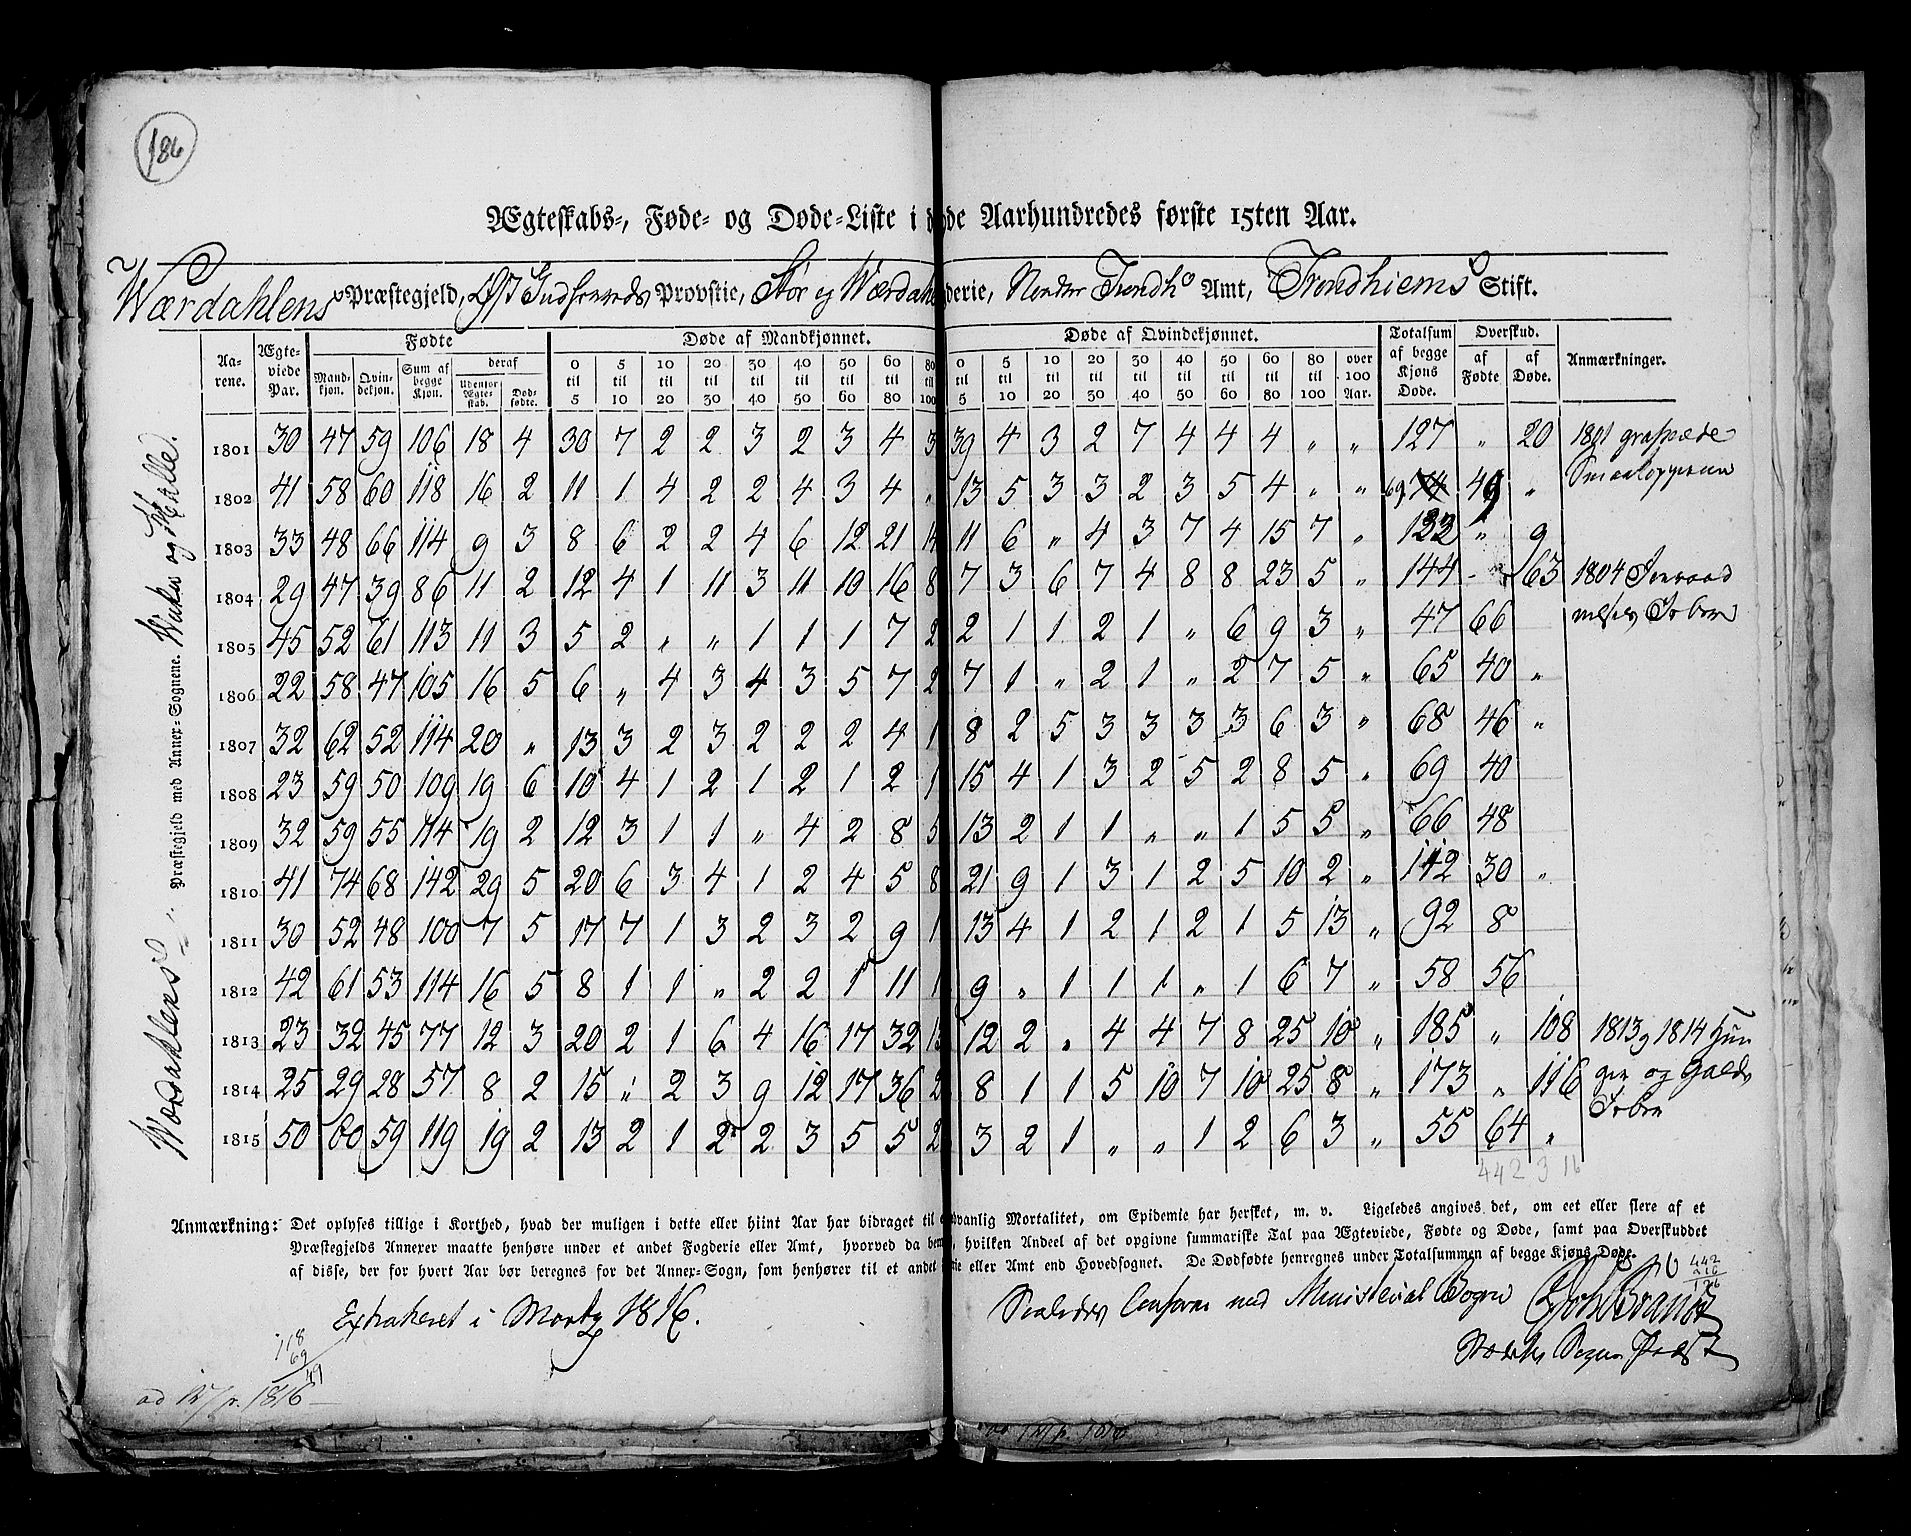 186
Ægteskabs-, Føde- og Døde-Liste i dette Aarhundredes første 15ten Aar.
Værdahlens Præstegjeld, Provstie, Stør og Værdahls Fogderie, Nordre Trondh. Amt, Trondhiems Stift.
Værdahlens Præstegjeld med Annex-Sognene. Wuku og Halle.
Aarene. Ægteviede Par. Fødte Døde af Mandkjønnet. Døde af Qvindekjønnet. Totalsum af begge Kjøns Døde. Overskud. Anmærkninger.
Mandkjøn. Qvindekjøn. Sum af begge Kjøn. deraf Udenfor Ægteskab. Dødfødte. 0 til 5 5 til 10 10 til 20 20 til 30 30 til 40 40 til 50 50 til 60 60 til 80 80 til 100 0 til 5 5 til 10 10 til 20 20 til 30 30 til 40 40 til 50 50 til 60 60 til 80 80 til 100 over 100 Aar. af Fødte af Døde.
1801 30 47 59 106 18 4 30 7 2 2 3 2 3 4 3 39 4 3 2 7 4 4 4 " " 127 " 20 1801 grasserede
1802 41 58 60 118 16 2 11 1 4 2 2 4 3 4 " 13 5 3 3 2 3 5 4 " " 69 74 49 " Smaakopperne
1803 33 48 66 114 9 3 8 6 2 2 4 6 12 21 14 11 6 " 4 3 7 4 15 7 " 133 " 9
1804 29 47 39 86 11 2 12 4 1 11 3 11 10 16 8 7 3 6 7 4 8 8 23 5 " 144 - 63 1804
1805 45 52 61 113 11 3 5 2 " " 1 1 1 7 2 2 1 1 2 1 " 6 9 3 " 47 66
1806 22 58 47 105 16 5 6 " 4 3 4 3 5 7 2 7 1 " 2 1 " 2 7 5 " 65 40 "
1807 32 62 52 114 20 " 13 3 2 3 2 2 2 4 1 8 2 5 3 3 3 3 6 3 " 68 46 "
1808 23 59 50 109 19 6 10 4 1 2 1 2 1 2 1 15 4 1 3 2 5 2 8 5 " 69 40
1809 32 59 55 114 19 2 12 3 1 1 " 4 2 8 5 13 2 1 1 " " 1 5 5 " 66 48
1810 41 74 68 142 29 5 20 6 3 4 1 2 4 5 8 21 9 1 3 1 2 5 10 2 " 112 30 "
1811 30 52 48 100 7 5 17 7 1 3 2 3 2 9 1 13 4 1 2 1 2 1 5 13 " 92 8
1812 42 61 53 114 16 5 8 1 1 " 2 2 1 11 1 9 " 1 1 1 " 1 6 7 " 58 56
1813 23 32 45 77 12 3 20 2 1 6 4 16 17 32 13 12 2 " 4 4 7 8 25 10 " 185 " 108 1813 og 1814 Hun
1814 25 29 28 57 8 2 15 " 2 3 9 12 17 36 2 8 1 1 5 10 7 10 25 8 " 173 " 116 ger og Galde
1815 50 60 59 119 19 2 13 2 1 2 2 3 5 5 2 3 2 1 " " 1 2 6 3 " 55 64 " Feber
442 316
Anmærkning: Det oplyses tillige i Korthed, hvad der muligen i dette eller hiint Aar har bidraget til usædvanlig Mortalitet, om Epidemie har hersket, m. v. Ligeledes angives det, om eet eller flere af et
Præstegjelds Annexer maatte henhøre under et andet Fogderie eller Amt, hvorved da bemærkes, hvilken Andeel af det opgivne summariske Tal paa Ægteviede, Fødte og Døde, samt paa Overskuddet
af disse, der for hvert Aar bør beregnes for det Annex-Sogn, som henhører til et andet Fogderie eller Amt end Hovedsognet. De Dødfødte henregnes under Totalsummen af begge Kjøns Døde.
442
316
126
Extraheret i Marty 1816.
Saaledes Conform med Ministerial Bogen
Brandt
Sogne Præst
118
69
49
ad 1816
1816